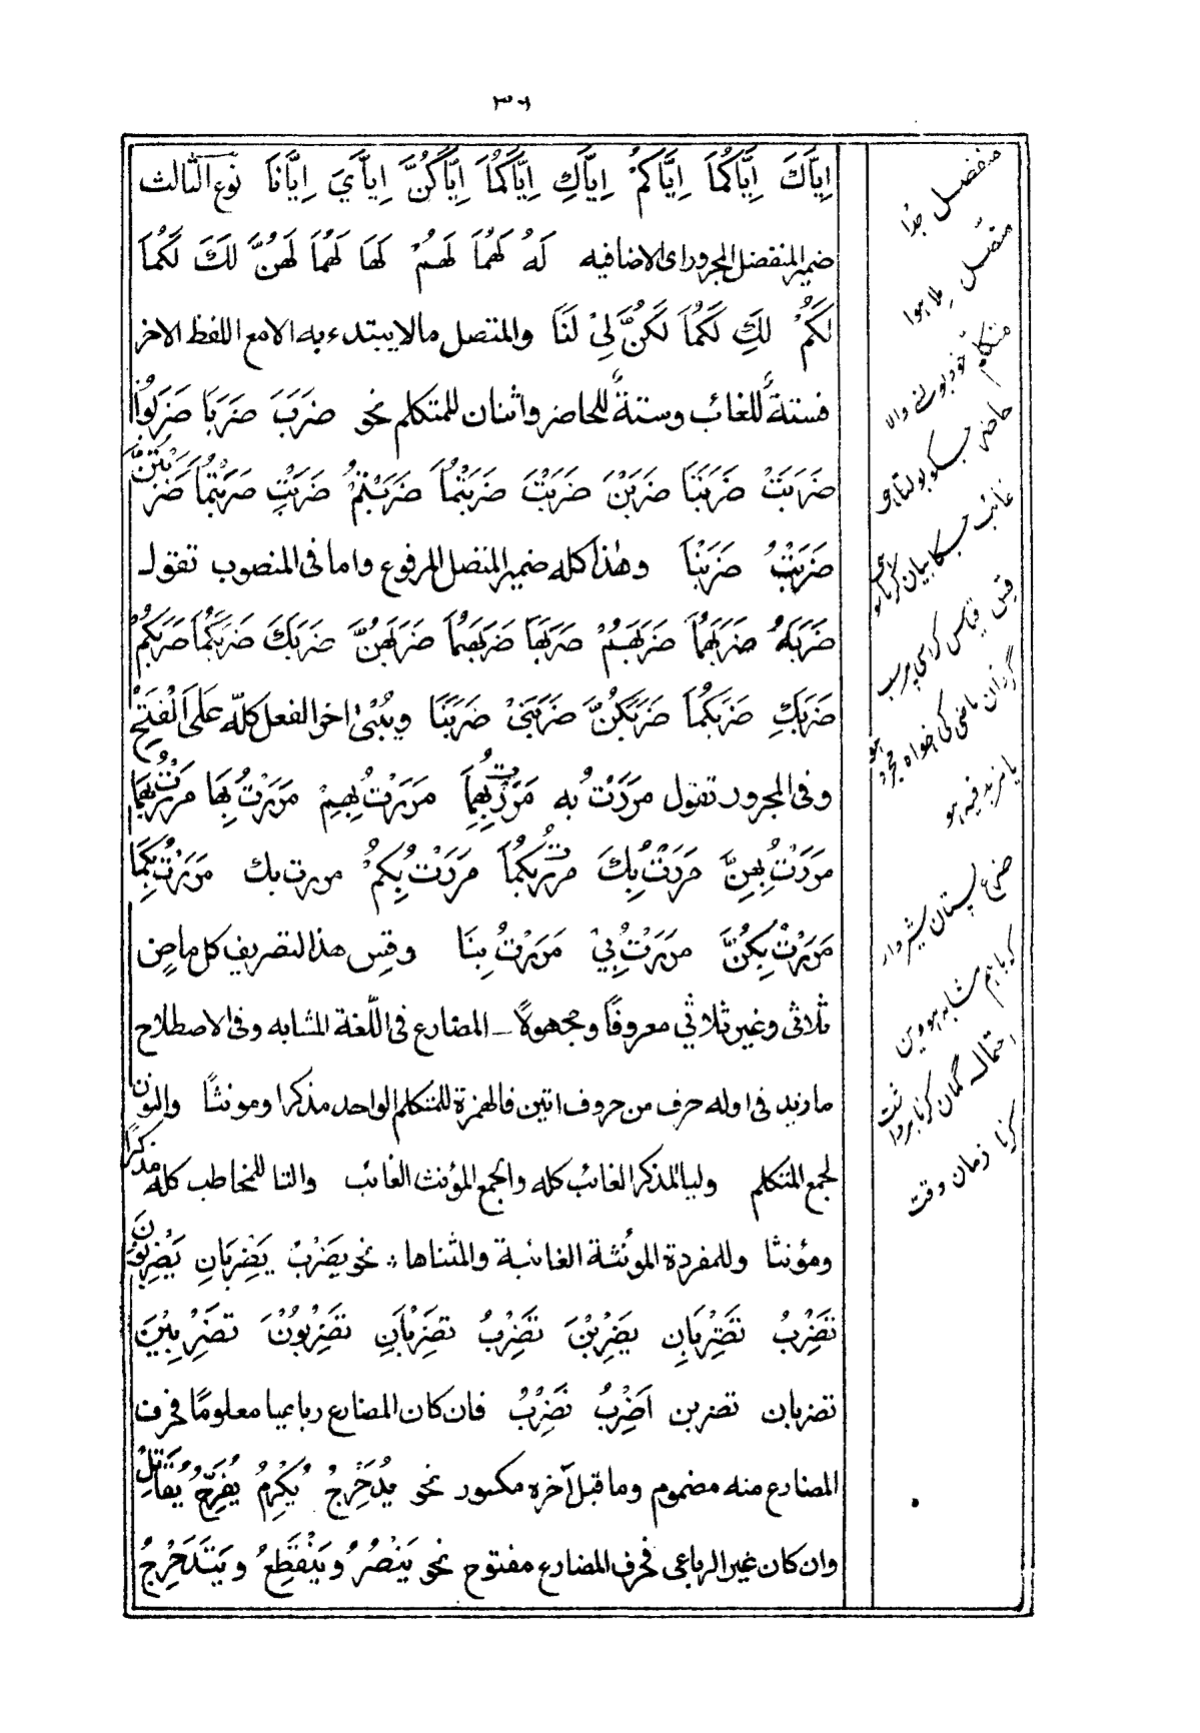 ٣٦
اِيَّاكَ اِيَّاكُمَا اِيَّاكُمْ اِيَّاكِ اِيَّاكُمَا اِيَّاكُنَّ اِيَّايَ اِيَّانَا نوع الثالث
ضمير المنفضل المجرور اى الاضافيه لَهُ لَهُمَا لَهُمْ لَهَا لَهُمَا لَهُنَّ لَكَ لَكُمَا
لَكُمْ لَكِ لَكُمَا لَكُنَّ لِىْ لَنَا والمتصل مالا يبتدء به الا مع اللفظ الاخر
فستةٌ للغائب وستةٌ للحاضر واثنان للمتكلم نحو ضَرَبَ ضَرَبَا ضَرَبُوْا
ضَرَبَتْ ضَرَبَتَا ضَرَبْنَ ضَرَبْتَ ضَرَبْتُمَا ضَرَبْتُمْ ضَرَبْتِ ضَرَبْتُمَا ضَرَبْتُنَّ
ضَرَبْتُ ضَرَبْنَا وهٰذا كله ضمير المتصل المرفوع واما فى المنصوب تقول
ضَرَبَهُ ضَرَبَهُمَا ضَرَبَهُمْ ضَرَبَهَا ضَرَبَهُمَا ضَرَبَهُنَّ ضَرَبَكَ ضَرَبَكُمَا ضَرَبَكُمْ
ضَرَبَكِ ضَرَبَكُمَا ضَرَبَكُنَّ ضَرَبَنِىْ ضَرَبَنَا ويُبْنٰى اخر الفعل كلّه عَلَى الْفَتْحِ
وفى المجرور تقول مَرَرْتُ به مَرَرْتُ بِهِمَا مَرَرْتُ بِهِمْ مَرَرْتُ بِهَا مَرَرْتُ بِهِمَا
مَرَرْتُ بِهِنَّ مَرَرْتُ بِكَ مَرَرْتُ بِكُمَا مَرَرْتُ بِكُمْ مررت بك مَرَرْتُ بِكُمَا
مَرَرْتُ بِكُنَّ مَرَرْتُ بِىْ مَرَرْتُ بِنَا وقِس هذا التصريف كل ماضٍ
ثلاثى وغير ثلاثي معروفًا ومجهولًا ـ المضارع فى اللّغة المشابه وفى الاصطلاح
مازيد فى اوله حرف من حروف اتين فالهمزة للمتكلم الواحد مذكرا ومونثًا والنون
لجمع المتكلم وليا لمذكر الغائب كله والجمع المؤنث الغائب والتا للمخاطب كله مذكرًا
ومؤنثا وللمفردة المؤنثة الغائبة والمثناها ؞ نحو يَضْرِبُ يَضْرِبَانِ يَضْرِبُوْنَ
تَضْرِبُ تَضْرِبَانِ يَضْرِبْنَ تَضْرِبُ تَضْرِبَانِ تَضْرِبُوْنَ تَضْرِبِيْنَ
تضربان تضربن اَضْرِبُ نَضْرِبُ فان كان المضارع رباعيا معلومًا فحرف
المضارع منه مضموم وما قبل آخره مكسور نحو يُدَحْرِجُ يُكْرِمُ يُفَرِّحُ يُقَاتِلُ
وان كان غير الرباعى فحرف المضارع مفتوح نحو يَنْصُرُ وَيَنْقَطِعُ وَيَتَدَحْرَجُ
منفضل جدا
متصل ملا ہوا
متکلم خود بولنے والا
حاضر جسکو بولتا ہو
غائب جسکا بیان کرتا ہو
قِس قیاس کر اسی پر سب
گردان ماضی کی خواہ مجرد ہو
یا مزید فیہ ہو
ضرع پستان شیردار
گویا ہم مشابہ ہووین
احتمالہ گمان کرنا برداشت
کرنا زمان وقت